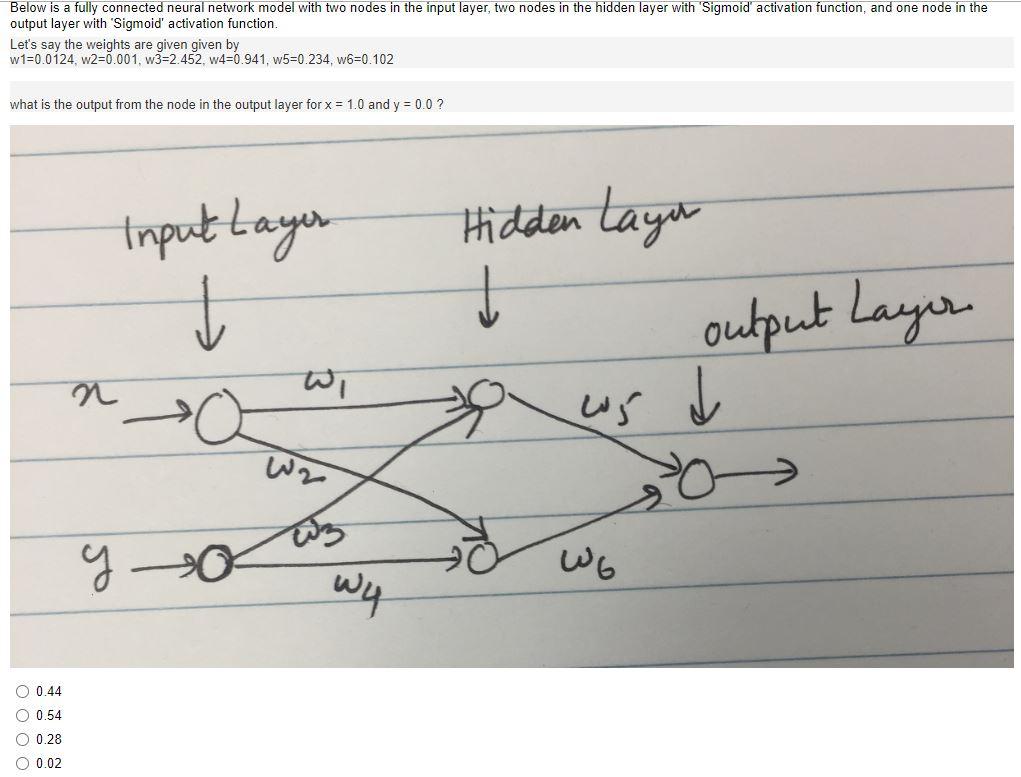 Below is a fully connected neural network model with two nodes in the input layer, two nodes in the hidden layer with 'Sigmoid' activation function, and one node in the
output layer with 'Sigmoid' activation function.
Let's say the weights are given given by
w1=0.0124, w2=0.001, w3=2.452, w4=0.941, w5=0.234, w6=0.102
what is the output from the node in the output layer for x = 1.0 and y = 0.0 ?
Input Layer
Hidden Layer
output Layer
x
w1
w5
w2
w3
y
w4
w6
0.44
0.54
0.28
0.02